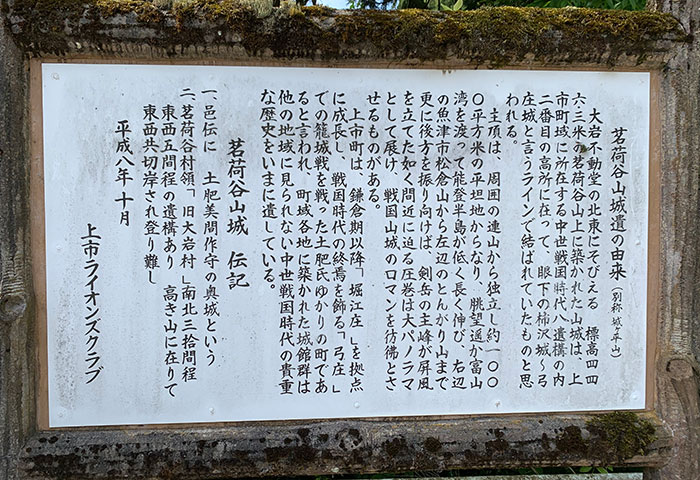 茗荷谷山城遺の由来（別称 城ヶ平山）
大岩不動堂の北東にそびえる 標高四四
六・三米の茗荷谷山上に築かれた山城は、上
市町域に所在する中世戦国時代八遺構の内
二番目の高所に在って、眼下の柿沢城〜弓
庄城と言うラインで結ばれていたものと思
われる。
主頂は、周囲の連山から独立し約一〇〇
〇平方米の平坦地からなり、眺望遥か富山
湾を渡って能登半島が低く長く伸び、右辺
の魚津市松倉山から左辺のとんがり山まで
更に後方を振り向けば、剣岳の主峰が屏風
を立てた如く間近に迫る圧巻は大パノラマ
として展け、戦国山城のロマンを彷彿とさ
せるものがある。
上市町は、鎌倉期以降「堀江庄」を拠点
に成長し、戦国時代の終焉を飾る「弓庄」
での籠城戦を戦った土肥氏ゆかりの町であ
ると言われ、町域各地に築かれた城館群は
他の地域に見られない中世戦国時代の貴重
な歴史をいまに遺している。
茗荷谷山城 伝記
一、邑伝に 土肥美間作守の奥城という
二、茗荷谷村領「旧大岩村」南北三拾間程
東西五間程の遺構あり 高き山に在りて
東西共切岸され登り難し
平成八年十月
上市ライオンズクラブ